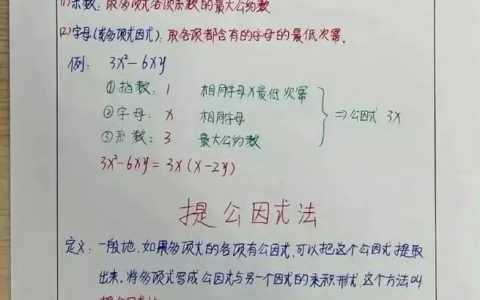 (1)系数：取多项式各项系数的最大公约数
(2)字母(或多项式因式)：取各项都含有的字母的最低次幂.
例： 3x²－6xy
①指数： 1 相同字母x最低次幂
②字母： x 相同字母
③系数： 3 最大公约数
⇒公因式 3x
3x²－6xy＝3x(x－2y)
提公因式法
定义：一般地,如果多项式的各项有公因式,可以把这个公因式提取
出来,将多项式写成公因式与另一个因式的乘积形式,这个方法叫